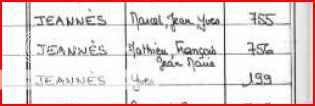 JEANNÈS Marcel, Jean Yves 755
JEANNÈS Mathieu François 756
Jean Marie
JEANNÈS Yves 199